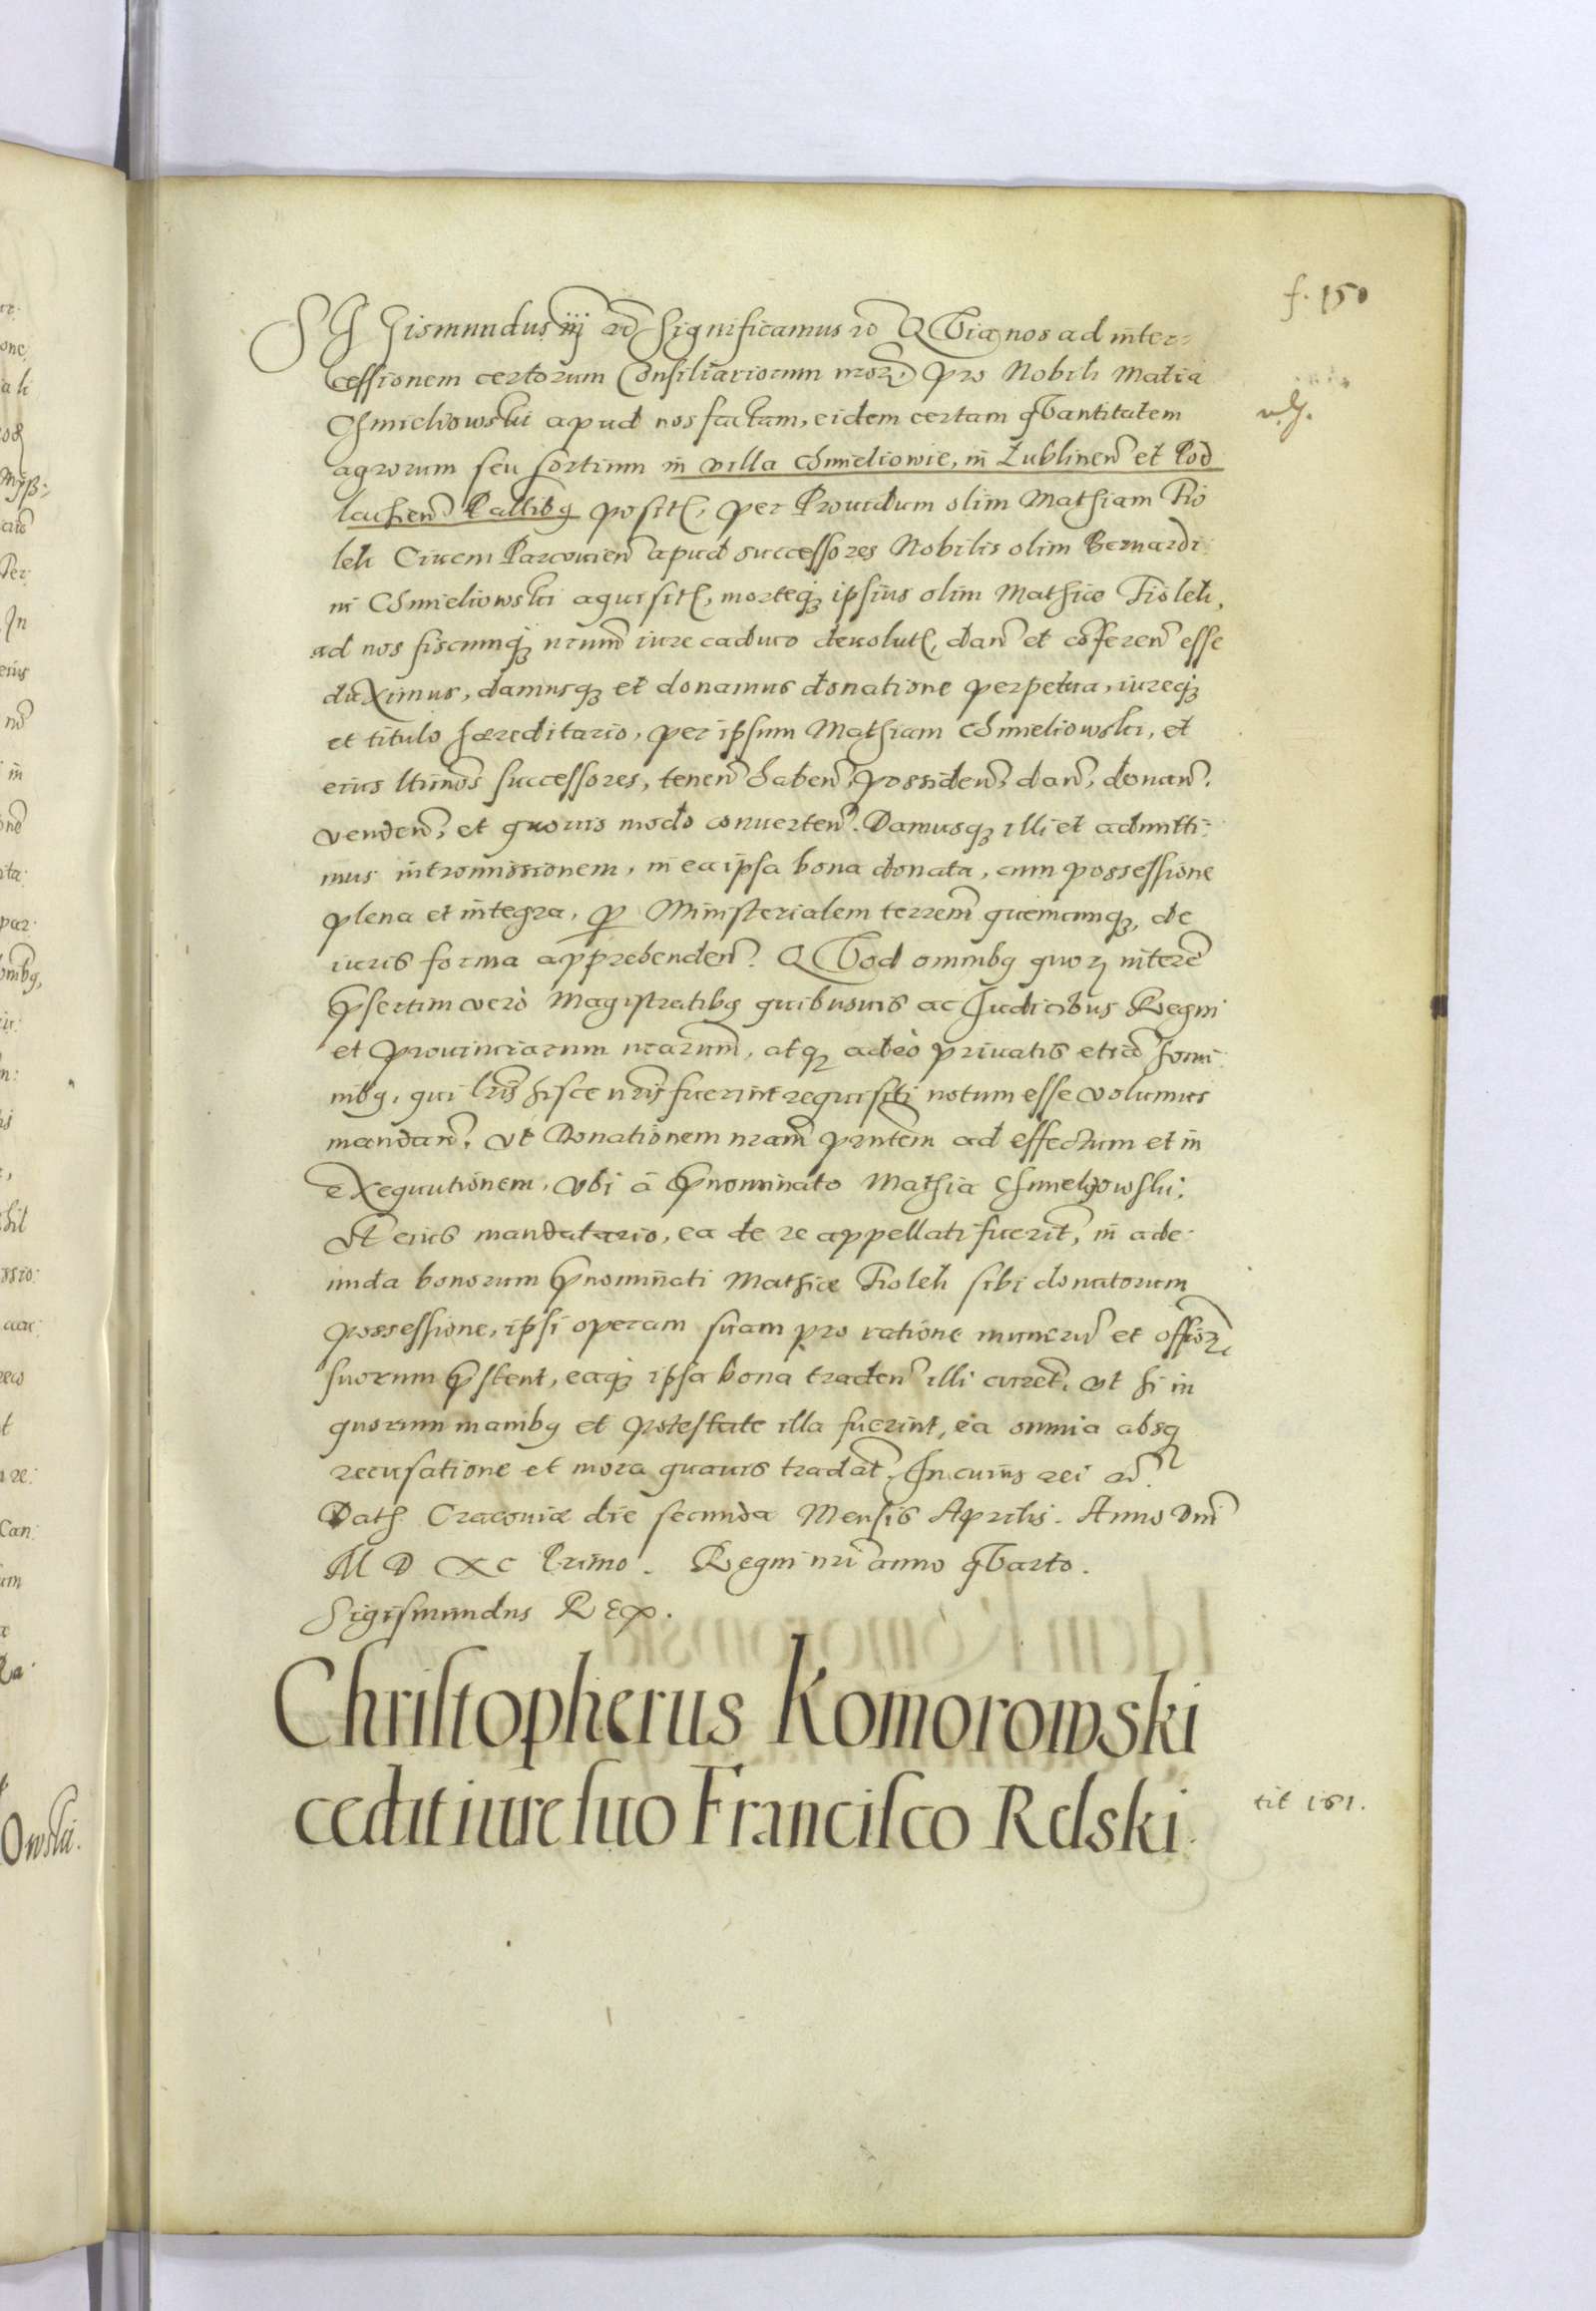 f. 150
SIGismundus iij rc Significamus rc QVia nos ad inter=
cessionem certorum Consiliariorum nror. pro Nobili Matia
Chmieliowski apud nos factam, eidem certam qVantitatem
agrorum seu sortium in villa Chmieliowie, in Lublinen et Pod
lachien Pallibq posit, per Prouidum olim Mathiam Fio
leli Ciuem Parcouien apud successores Nobilis olim Bernardi
ni Chmieliowski aquisit, morteq ipsius olim Mathiæ Fioleli,
ad nos fiscumq nrum iure caduco deuolut, dan et coferen esse
duximus, damusq et donamus donatione perpetua, iureq
et titulo hæreditario, per ipsum Mathiam Chmieliowski, et
eius ltimos successores, tenen haben, possiden, dan, donan.
venden, et quouis modo conuerten. Damusq illi et admitti:
mus intromissionem, in ea ipsa bona donata, cum possessione
plena et integra, p Ministerialem terrem quemcunq, de
iuris forma apprehenden. QVod omnibq quor intere
psertim verò Magistratibq quibusuis ac Iudicibus Regni
et prouinciarum nrarum, atq adeò priuatis etia homi
nibq, qui lris hisce nris fuerint requisiti notum esse volumus
mandan, vt Donationem nram pntem ad effectum et in
exequutionem, vbi à pnominato Mathia Chmelyowski.
Vt eius mandatario, ea de re appellati fuerit, in ade:
unda bonorum pnominati Mathiæ Fioleli sibi donatorum
possessione, ipsi operam suam pro ratione muneru et offior
suorum pstent, eaq ipsa bona traden illi curet, vt si in
quorum manibq et potestate illa fuerint, ea omnia absq
recusatione et mora quauis tradat. In cuius rei rc.
Dat Cracouiæ die secunda Mensis Aprilis. Anno Dni
M D XC Primo. Regni nri anno qVarto.
Sigismundus REX.
Christopherus Komorowski
cedit iure suo Francisco Relski.
tit 161.